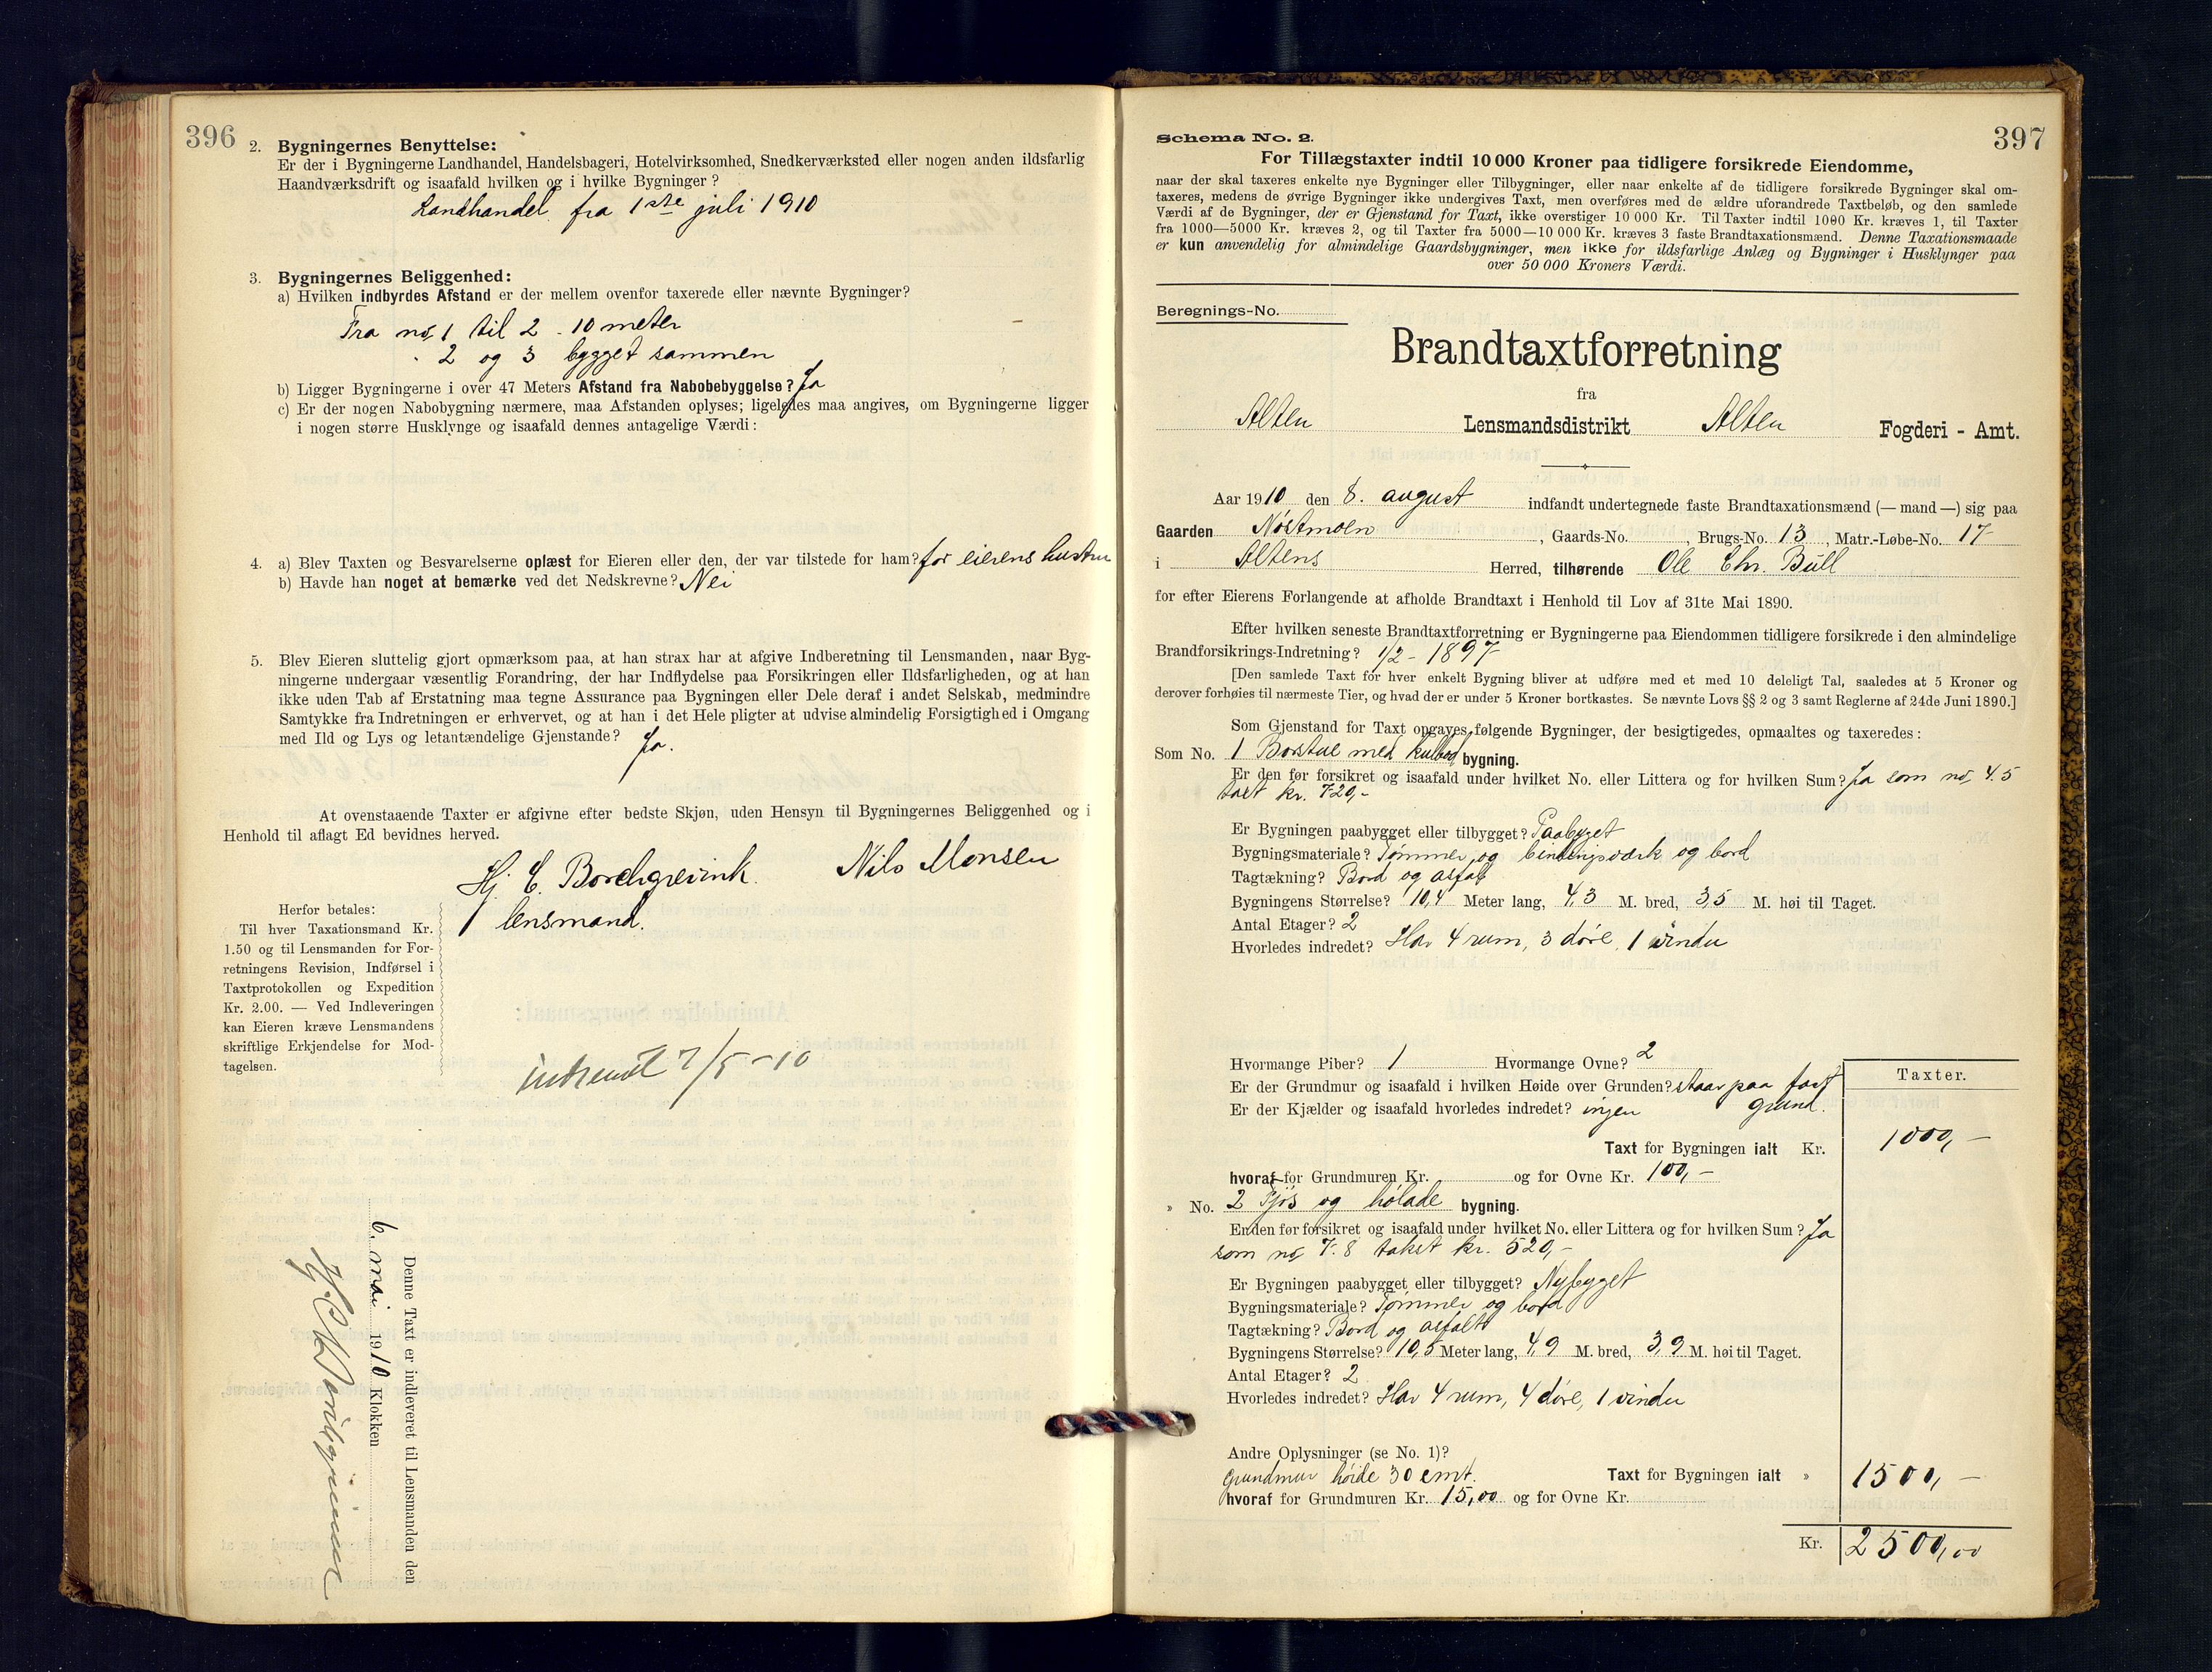 396
2. Bygningernes Benyttelse:
Er der i Bygningerne Landhandel, Handelsbageri, Hotelvirksomhed, Snedkerværksted eller nogen anden ildsfarlig
Haandværksdrift og isaafald hvilken og i hvilke Bygninger?
Landhandel fra 1ste juli 1910
3. Bygningernes Beliggenhed:
a) Hvilken indbyrdes Afstand er der mellem ovenfor taxerede eller nævnte Bygninger?
Fra no, 1 til 2 - 10 meter
" 2 og 3 bygget sammen
b) Ligger Bygningerne i over 47 Meters Afstand fra Nabobebyggelse? Ja
c) Er der nogen Nabobygning nærmere, maa Afstanden oplyses; ligeledes maa angives, om Bygningerne ligger
i nogen større Husklynge og isaafald dennes antagelige Værdi:
4. a) Blev Taxten og Besvarelserne oplæst for Eieren eller den, der var tilstede for ham? for eierens hustru
b) Havde han noget at bemærke ved det Nedskrevne? Nei
5. Blev Eieren sluttelig gjort opmærksom paa, at han strax har at afgive Indberetning til Lensmanden, naar Byg-
ningerne undergaar væsentlig Forandring, der har Indflydelse paa Forsikringen eller Ildsfarligheden, og at han
ikke uden Tab af Erstatning maa tegne Assurance paa Bygningen eller Dele deraf i andet Selskab, medmindre
Samtykke fra Indretningen er erhvervet, og at han i det Hele pligter at udvise almindelig Forsigtighed i Omgang
med Ild og Lys og letantændelige Gjenstande? Ja.
At ovenstaaende Taxter er afgivne efter bedste Skjøn, uden Hensyn til Bygningernes Beliggenhed og i
Henhold til aflagt Ed bevidnes herved.
Hj C. Borchgrevink. Nils Monsen
lensmand.
Herfor betales:
Til hver Taxationsmand Kr.
1.50 og til Lensmanden for For-
retningens Revision, Indførsel i
Taxtprotokollen og Expedition
Kr. 2.00. — Ved Indleveringen
kan Eieren kræve Lensmandens
skriftlige Erkjendelse for Mod-
tagelsen.
7/5-10
Denne Taxt er indleveret til Lensmanden den
6. mai 1910 Klokken
397
Schema No. 2.
For Tillægstaxter indtil 10 000 Kroner paa tidligere forsikrede Eiendomme,
naar der skal taxeres enkelte nye Bygninger eller Tilbygninger, eller naar enkelte af de tidligere forsikrede Bygninger skal om-
taxeres, medens de øvrige Bygninger ikke undergives Taxt, men overføres med de ældre uforandrede Taxtbeløb, og den samlede
Værdi af de Bygninger, der er Gjenstand for Taxt, ikke overstiger 10 000 Kr. Til Taxter indtil 1000 Kr. kræves 1, til Taxter
fra 1000—5000 Kr. kræves 2, og til Taxter fra 5000—10 000 Kr. kræves 3 faste Brandtaxationsmænd. Denne Taxationsmaade
er kun anvendelig for almindelige Gaardsbygninger, men ikke for ildsfarlige Anlæg og Bygninger i Husklynger paa
over 50 000 Kroners Værdi.
Beregnings-No.
Brandtaxtforretning
fra
Alten Lensmandsdistrikt Alten Fogderi - Amt.
Aar 1910 den 8. august indfandt undertegnede faste Brandtaxationsmænd (— mand —) sig paa
Gaarden Nøstmoen, Gaards-No. , Brugs-No. 13, Matr.-Løbe-No. 17
i Altens Herred, tilhørende Ole Chr. Bull
for efter Eierens Forlangende at afholde Brandtaxt i Henhold til Lov af 31te Mai 1890.
Efter hvilken seneste Brandtaxtforretning er Bygningerne paa Eiendommen tidligere forsikrede i den almindelige
Brandforsikrings-Indretning? 1/2 - 1897
[Den samlede Taxt for hver enkelt Bygning bliver at udføre med et med 10 deleligt Tal, saaledes at 5 Kroner og
derover forhøies til nærmeste Tier, og hvad der er under 5 Kroner bortkastes. Se nævnte Lovs §§ 2 og 3 samt Reglerne af 24de Juni 1890.]
Som Gjenstand for Taxt opgaves følgende Bygninger, der besigtigedes, opmaaltes og taxeredes:
Som No. 1 Borstue med bygning.
Er den før forsikret og isaafald under hvilket No. eller Littera og for hvilken Sum? Ja som no, 4. 5
taxt kr. 720,-
Er Bygningen paabygget eller tilbygget? Paabyget
Bygningsmateriale? Tømmer og bindingsværk og bord
Tagtækning? Bord og asfalt
Bygningens Størrelse? 10,4 Meter lang, 4,3 M. bred, 3,5 M. høi til Taget.
Antal Etager? 2
Hvorledes indredet? Har 4 rum, 3 døre, 1 vindu
Hvormange Piber? 1 Hvormange Ovne? 2
Er der Grundmur og isaafald i hvilken Høide over Grunden? staar paa fast
Er der Kjælder og isaafald hvorledes indredet? ingen grund.
Taxter.
Taxt for Bygningen ialt Kr. 1000,-
hvoraf for Grundmuren Kr. og for Ovne Kr. 100,-
" No. 2 Fjøs og hølade bygning.
Er den før forsikret og isaafald under hvilket No. eller Littera og for hvilken Sum? Ja
som no, 7. 8 takst kr. 520,-
Er Bygningen paabygget eller tilbygget? Nybygget
Bygningsmateriale? Tømmer og bord
Tagtækning? Bord og asfalt
Bygningens Størrelse? 10,5 Meter lang, 4,9 M. bred, 3,9 M. høi til Taget.
Antal Etager? 2
Hvorledes indredet? Har 4 rum, 4 døre, 1 vindu
Andre Oplysninger (se No. 1)?
Grundmur høide 30 cmt. Taxt for Bygningen ialt " 1500,-
hvoraf for Grundmuren Kr. 15,00 og for Ovne Kr.
Kr. 2500,00